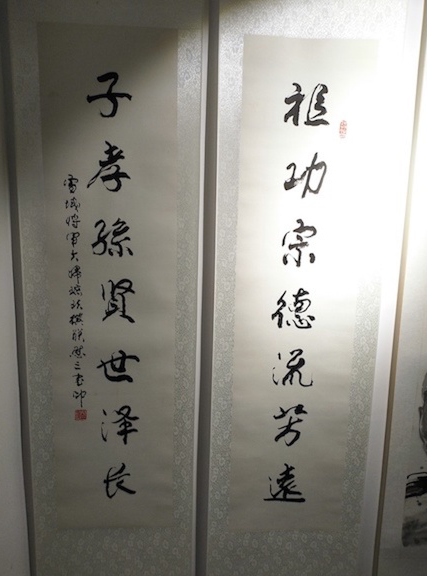 祖功宗德流芳远
子孝孙贤世泽长